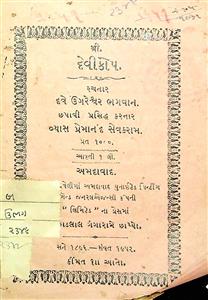 શ્રી.
દેવીકોપ.
રચનાર
દવે ઉગરેશ્વર ભગવાન.
છપાવી પ્રસિદ્ધ કરનાર
વ્યાસ પ્રેમાનંદ સેવકરામ.
પ્રત ૧૦૦૦.
આવૃતી ૧ લી.
અમદાવાદ.
અમદાવાદ યુનાઈટેડ પ્રિન્ટીંગ
જનરલ એજન્સી કંપની
"લિમિટેડ" ના પ્રેસમાં
સને ૧૮૯૬-સંવત ૧૯૫૨.
કીંમત ૦ાા આનો.
ઉભગ